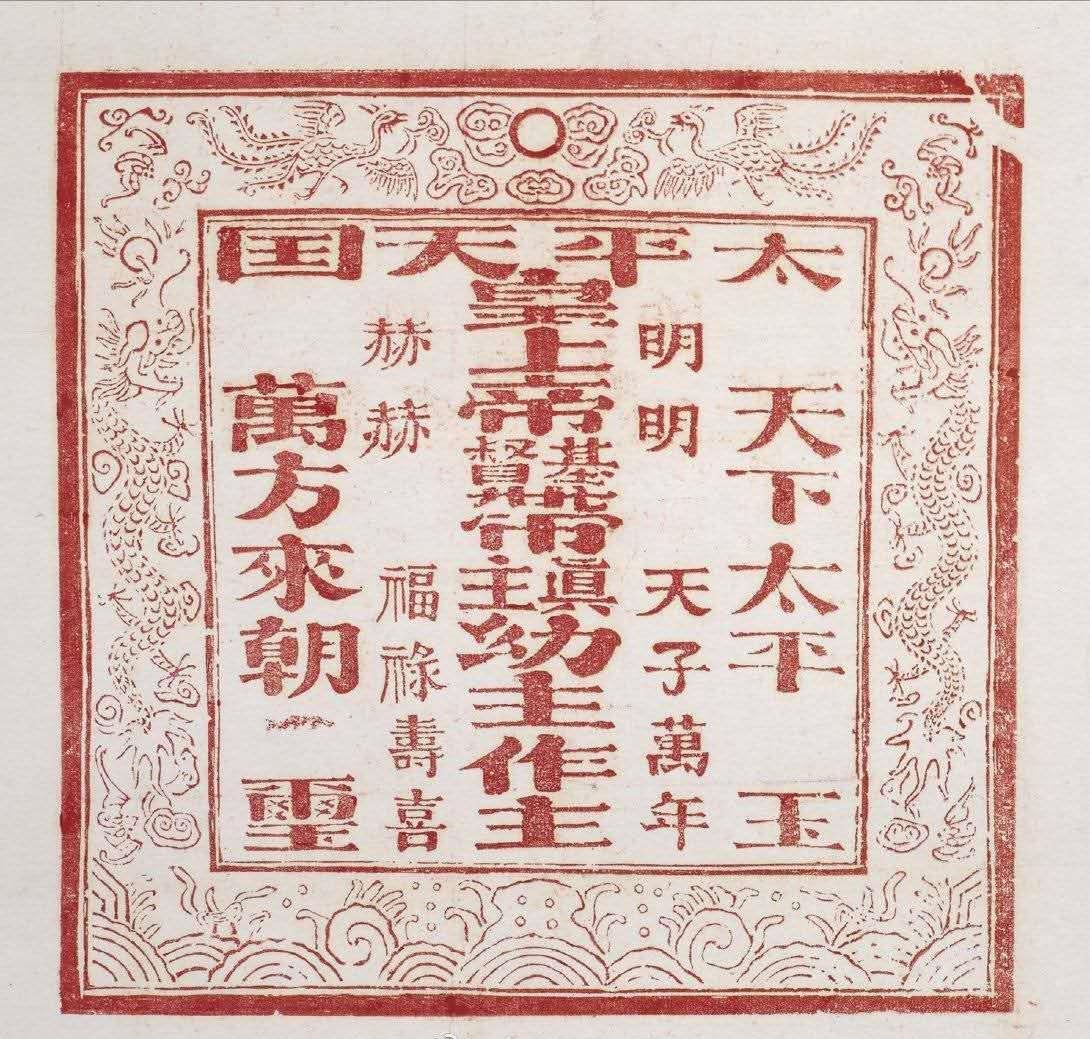 太平天囯
天下太平 玉
明明 天子萬年
皇上帝基督带眞主幼主作主
赫赫 福祿壽喜
萬方來朝 璽